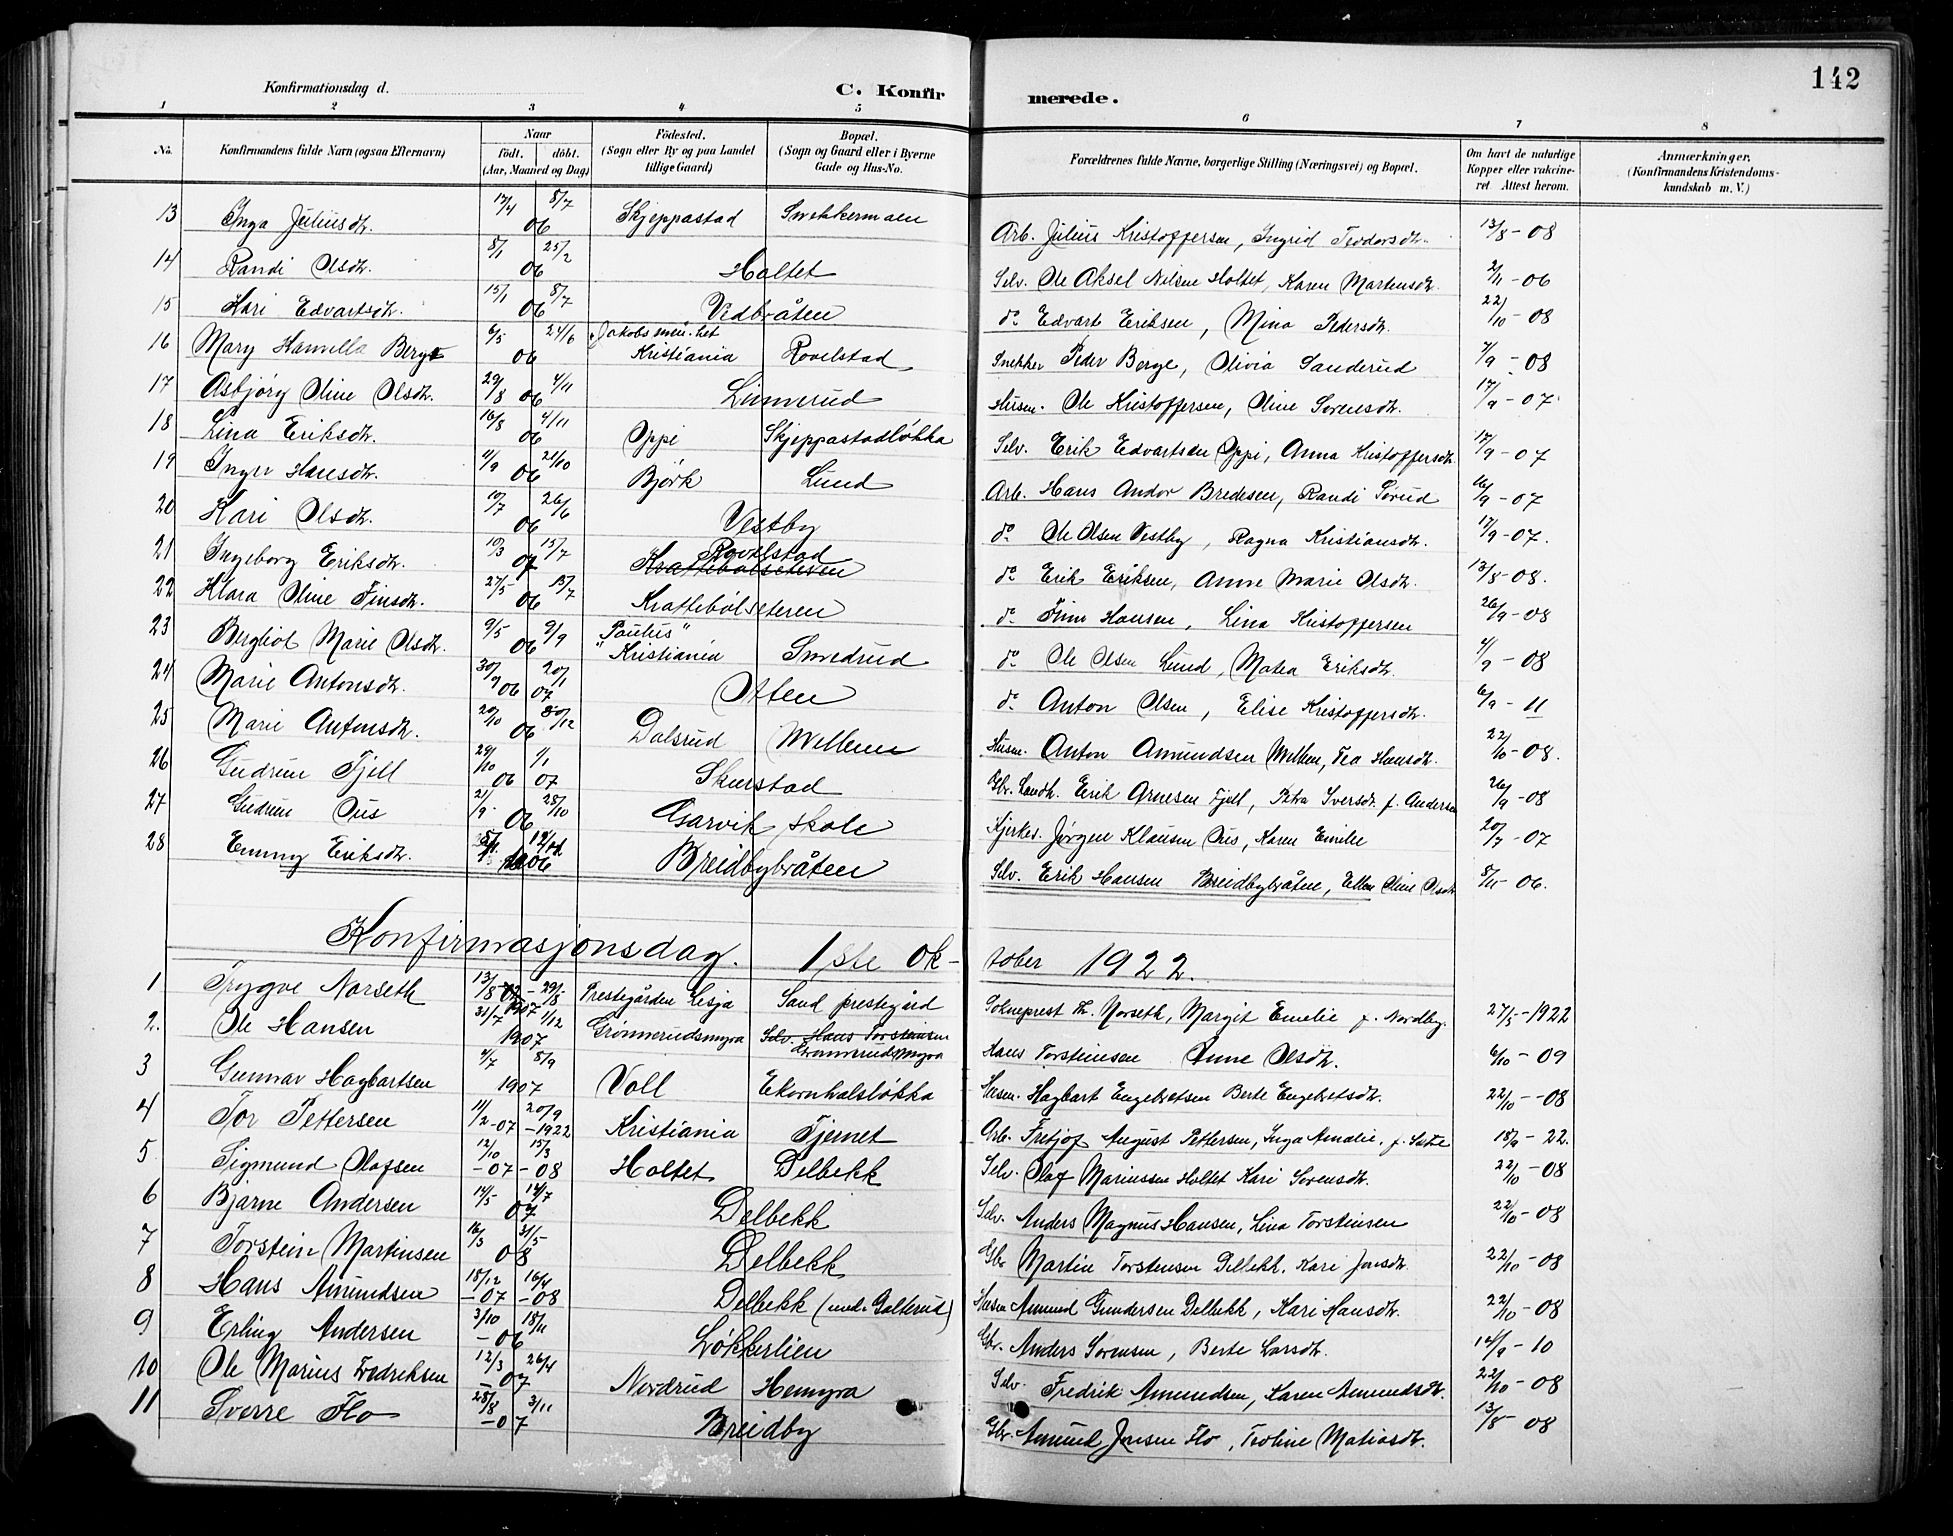 142
Konfirmationsdag d.
C. Konfirmerede.
1 2 3 4 5 6 7 8
No. Konfirmandens fulde Navn (ogsaa Efternavn) Naar födt. döbt. (Aar, Maaned og Dag) Födested. (Sogn eller By og paa Landet tillige Gaard) Bopæl. (Sogn og Gaard eller i Byerne Gade og Hus-No. Forældrenes fulde Navne, borgerlige Stilling (Næringsvei) og Bopæl. Om havt de naturlige Kopper eller vakcineret Attest herom. Anmærkninger. (Konfirmandens Kristendomskundskab m. V.)
13 Inga Juliusdt. 17/4 8/7 06 Skjeppastad Snekkermoen Arb. Julius Kristoffersen, Ingrid Teodorsdt. 13/8 - 08
14 Randi Olsdt. 8/1 25/2 06 Holtet Selv. Ole Aksel Nilsen Holtet, Karen Martensdt. 2/11 - 06
15 Kari Edvartsdt. 15/1 8/7 06 Vedbråten do Edvart Eriksen, Mina Pedersdt. 22/10 - 08
16 Mary Berge 6/5 24/6 06 Kristiania Rovelstad Snekker Peder Berge, Olivia Sanderud 7/9 - 08
17 Asbjørg Oline Olsdt. 29/8 4/11 06 Linnerud Husm. Ole Kristoffersen, Oline Sørensdt. 17/9 - 07
18 Lina Eriksdt. 16/8 4/11 06 Oppi Skjeppastadløkka Selv. Erik Edvartsen Oppi, Anna Kristoffersdt. 17/9 - 07
19 Inger Hansdt. 11/9 21/10 06 Bjørk Lund Arb. Hans Andor Bredesen, Randi Sørud 16/9 - 07
20 Kari Olsdt. 10/7 26/6 06 Vestby do Ole Olsen Vestby, Ragna Kristiansdt. 17/9 - 07.
21 Ingeborg Eriksdt. 10/3 15/7 07 Rovelstad Krattebølseteren do Erik Eriksen, Anne Marie Olsdt. 13/8 - 08.
22 Klara Oline Finsdt. 27/5 15/7 06 Krattebølseteren do Finn Hansen, Lina Kristoffersen 26/9 - 08
23 Bergliot Marie Olsdt. 9/5 9/9 06 "Paulus" Kristiania Smedrud do Ole Olsen Lund, Matea Eriksdt. 4/9 - 08
24 Marie Antonsdt. 30/9 06 20/1 07 Osten do Anton Olsen, Elise Kristoffersdt. 6/9 - 11
25 Marie Antonsdt. 20/10 30/12 06 Dalsrud Mellem Husm. Anton Amundsen Mellem, Tea Hansdt. 22/10 - 08.
26 Gudrun Fjell 29/10 06 1/1 07 Skurstad Gbr. Landh. Erik Arnesen Fjell, Petra Iversdt. f. Andersen 26/9 - 08
27 Gudrun Ous 21/9 28/10 06 Garvik skole Kjerkes. Jørgen Klausen Ous, Karen Emilie 20/7 - 07
28 Emmy Eriksdt. 06 Breidbybråten Selv. Erik Hansen Breidbybråten, Ellen Oline Olsdt. 8/11 - 06.
Konfirmasjonsdag. 1ste oktober 1922.
1 Trygve Norseth 13/8 - 29/8 1907 Prestegården Lesja Sand prestegård Sokneprest Th. Norseth, Margit Emelie f. Nordby. 27/5 - 1922
2. Ole Hansen 31/7 1/12 1907 Grønnerudsmyra Selv. Hans Torsteinsen Grønnerudsmyra Hans Torsteinsen Anne Olsdt. 6/10 - 09
3 Gunnar Hagbartsen 4/7 8/9 1907 Voll Ekornholsløkka Husm. Hagbart Engebretsen Berte Engebretsdt. 22/10 - 08
4 Tor Pettersen 11/2 - 07 20/9 - 1922 Kristiania Tjernet Arb. Fretjof August Pettersen, Inga Amalie, f. 18/9 - 22.
5 Sigmund Olafsen 12/10 - 07 15/3 - 08 Holtet Delbekk Selv. Olaf Mariussen Holtet Kari Sørensdt. 22/10 - 08
6 Bjarne Andersen 14/5 14/7 07 Delbekk Selv. Anders Magnus Hansen, Lina Torsteinsen 22/10 - 08
7 Torstein Martinsen 16/3 31/5 08 Delbekk Gbr. Martin Torstensen Delbekk. Kari Jonsdt. 22/10 - 08
8 Hans Amundsen 18/12 - 07 16/4 - 08 Delbekk (und. Galterud) Husm Amund Gundersen Delbekk, Kari Hansdt. 22/10 - 08
9 Erling Andersen 3/10 18/11 - 06 Løkkerlien Gbr. Anders Sørensen, Berte Larsdt. 14/9 - 10
10 Ole Marius Fredriksen 12/3 26/4 - 07 Nordrud Hemyra Selv. Fredrik Amundsen, Karen Amundsdt. 22/10 - 08
11 Sverre Flo 28/8 3/11 - 07 Breidby Gbr. Amund Jensen Flo, Teoline Matiasdt. 13/8 - 08